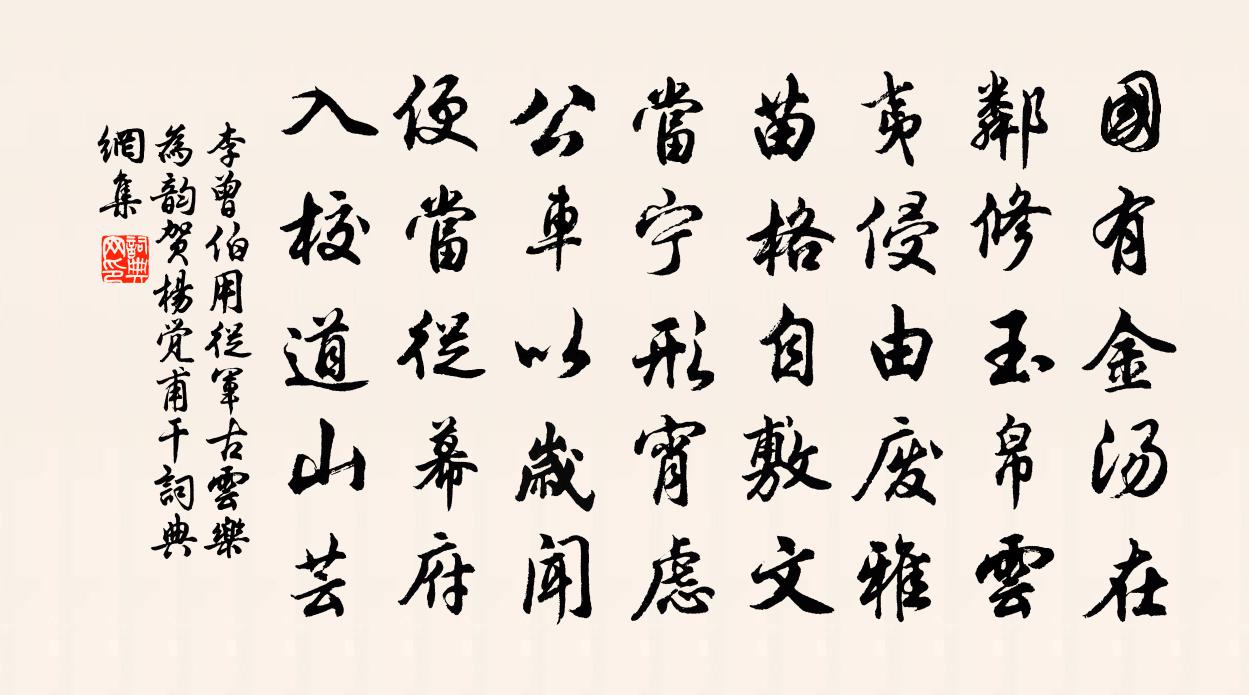 國有金汤在
鄰修玉帛雲
夷侵由廢雅
苗格自敷文
當宁形宵慮
公車以歲聞
便當從幕府
入校道山芸
李曾伯用從軍古雲樂
為韵贺楊觉甫干詞典
網集
詞典网印